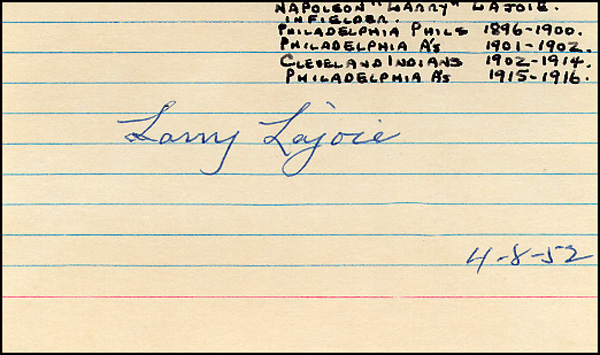 NAPOLEON "LARRY" LAJOIE.
INFIELDER.
PHILADELPHIA PHILS 1896-1900.
PHILADELPHIA A's 1901-1902.
CLEVELAND INDIANS 1902-1914.
PHILADELPHIA A's 1915-1916.
Larry Lajoie
4-8-52